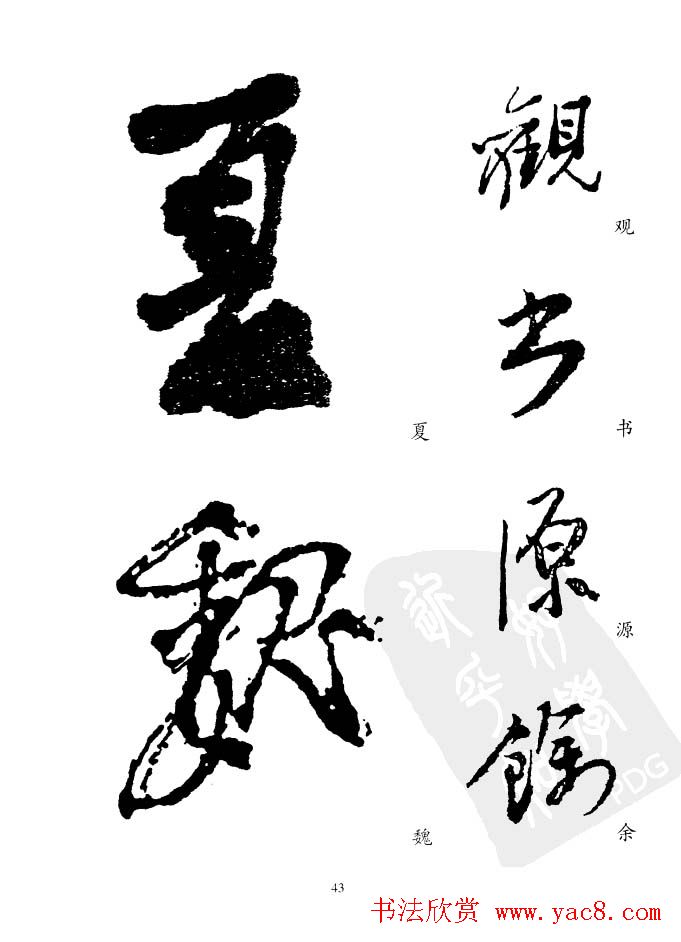 觀
观
书
书
源
源
餘
余
夏
夏
魏
魏
43
书法欣赏 www.yac8.com
PDG